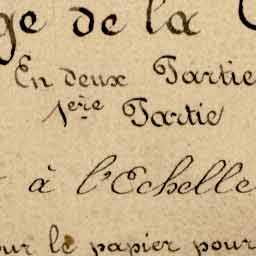 ge de la
En deux Partie
1ère Partie
à l'Echelle
our le papier pour